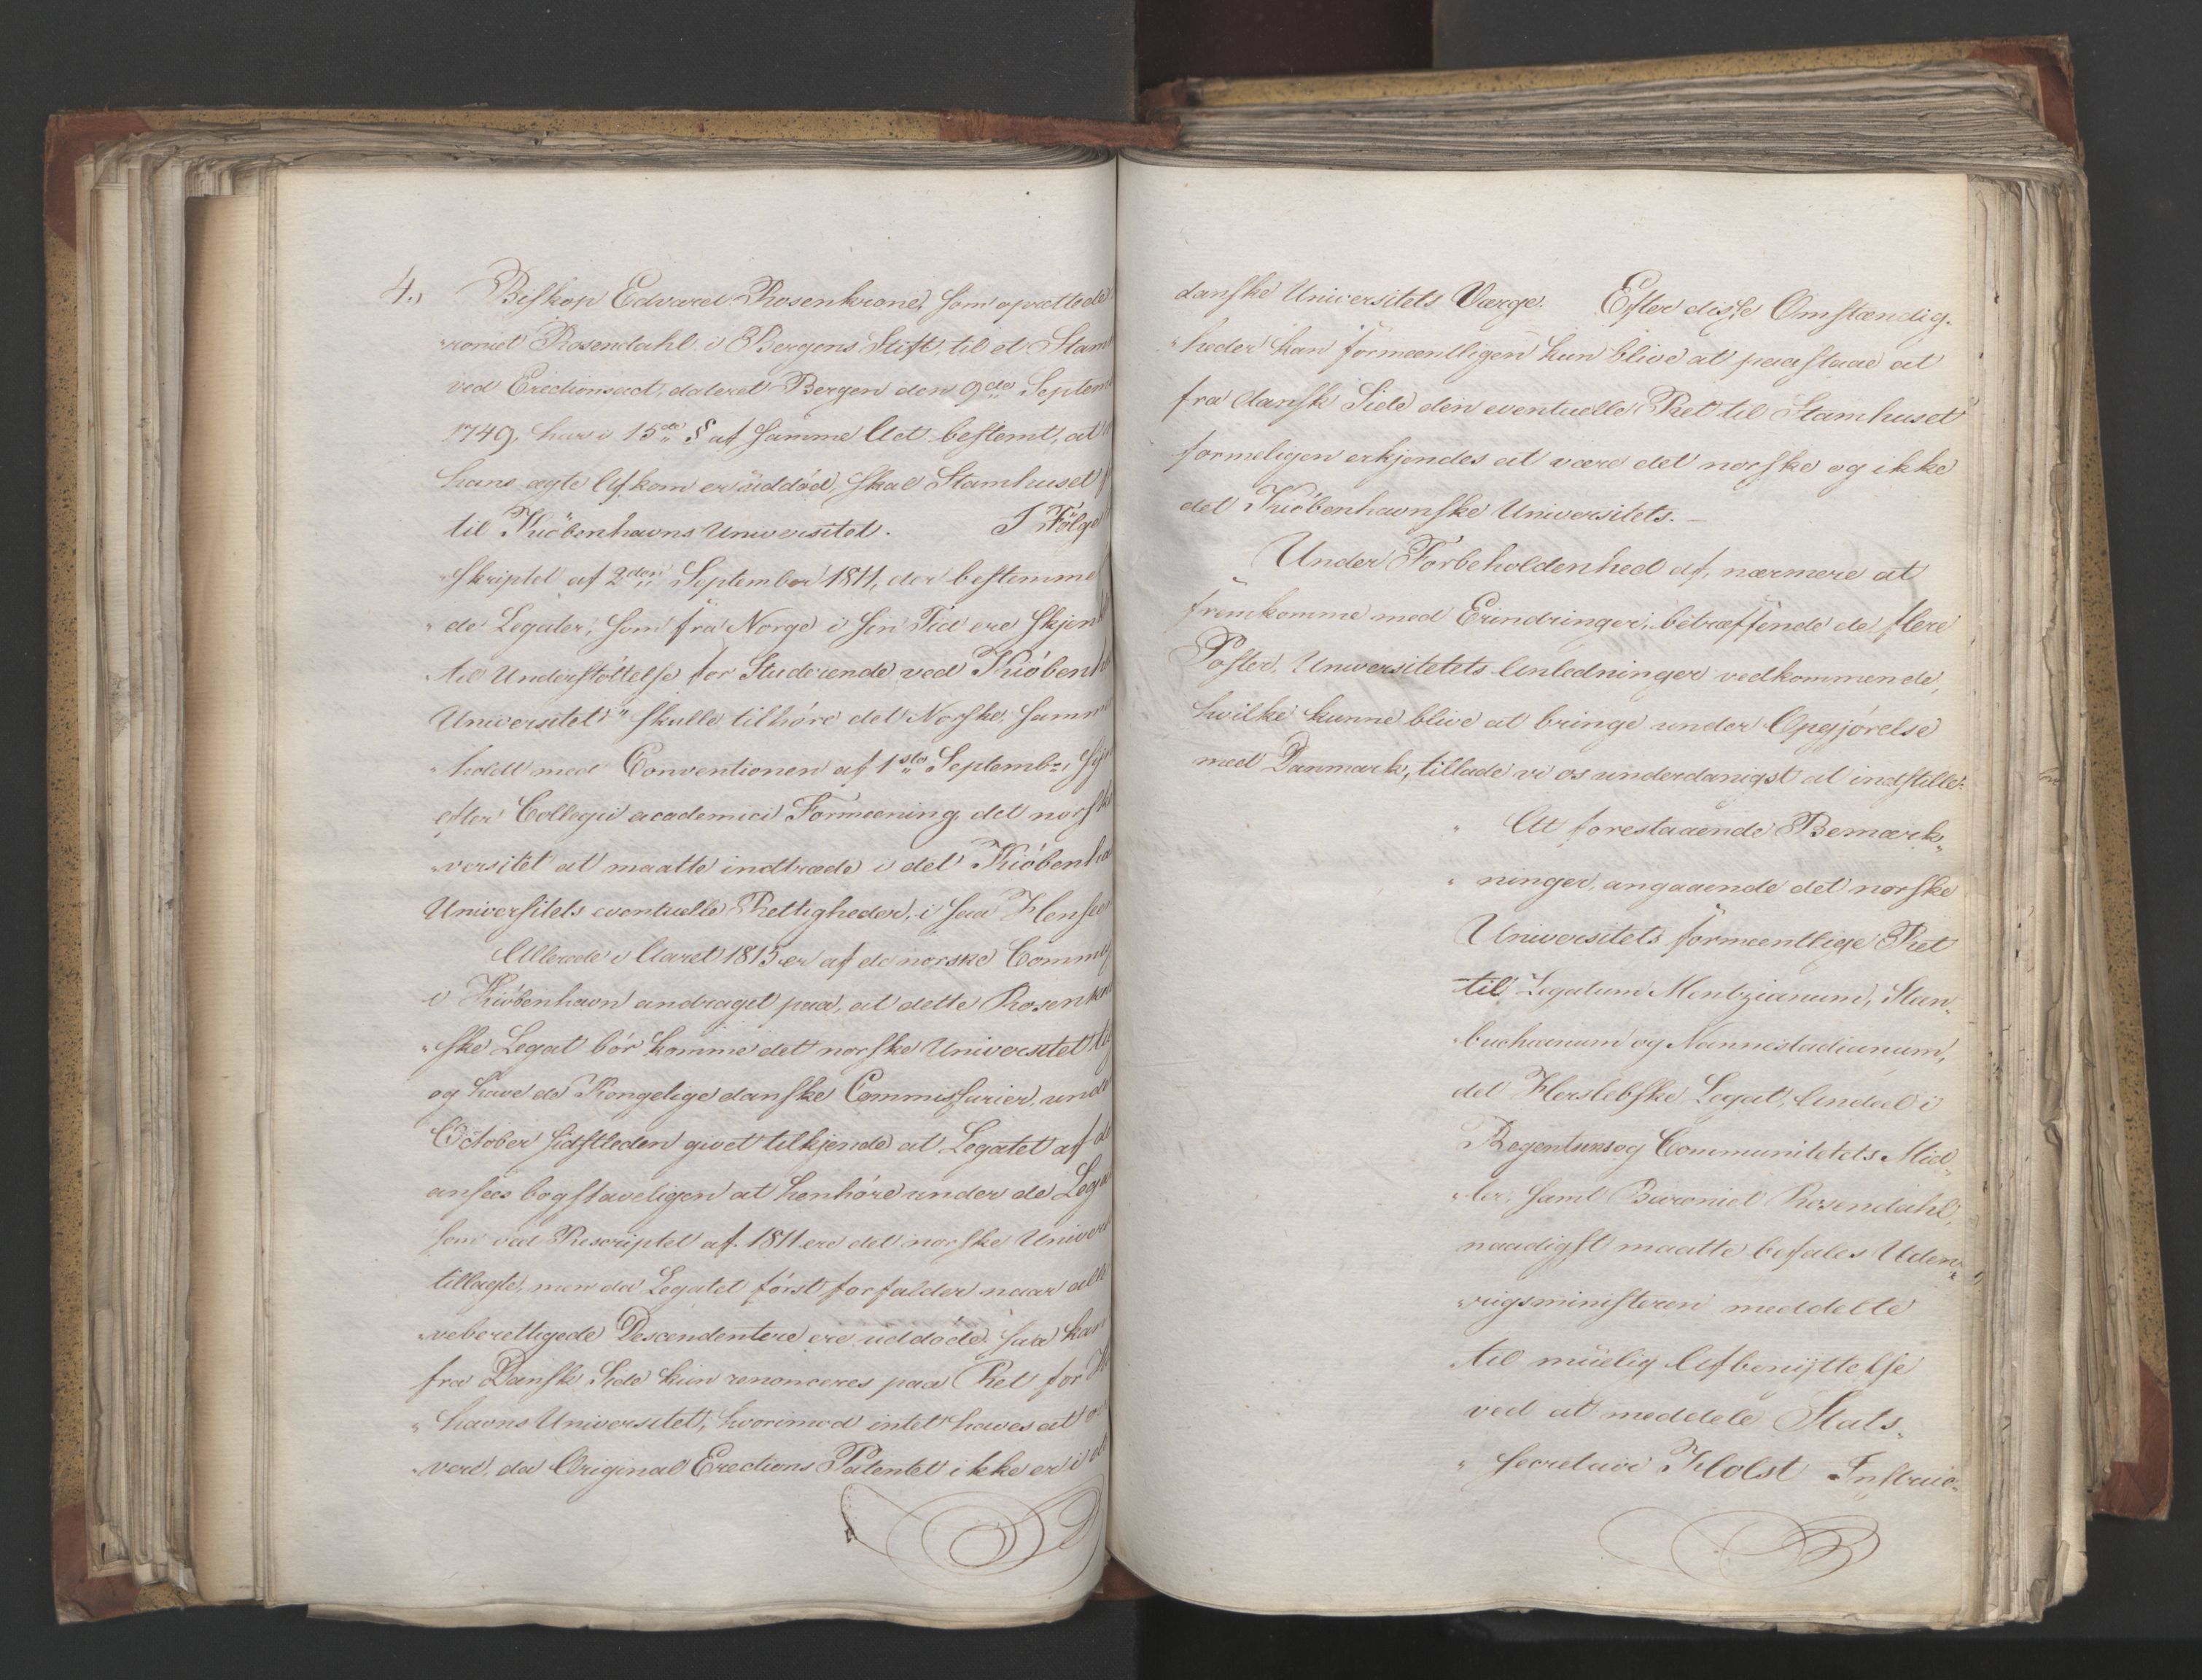 4., Biskop Edvard Rosenkrone, som oprettede
„roniet Rosendahl i Bergens Stift, til et Stam
ved Erectionsact, dateret Bergen den 9de Septem
1749, har i 15de § af samme Act bestemt, at
hans ægte Afkom er uddød, skal Stamhuset
til Kiöbenhavns Universitet. I Følge
„skriptet af 2den September 1811, der bestemme
„de Legater, som fra Norge i sin Tid ere skjen
„til Understøttelse for Studerende ved Kiöben
Universitet" skulle tilhöre det Norske, samm
„holdt med Conventionen af 1ste Septembr.
efter Collegii academici Formeening det norsk
„versitet at maatte indtræde i det Kiöbenha
Universitets eventuelle Rettigheder, i saa Hense
Allerede i Aaret 1815 er af de norske Comm
i Kiöbenhavn andraget paa, at dette Rosenkr
„ske Legat bör komme det norske Universitet til
og have de Kongelige danske Commissarier, unde
October sidstleden givet tilkjende at Legatet af de
ansees bogstaveligen at henhöre under de Leg
som ved Rescriptet af 1811 ere det norske Univer
tillagte, men da Legatet först forfalder naar alle
„veberettigede Descendentere ere uddöde, saa kan
fra Dansk Side kun renonceres paa Ret for
„havns Universitet, hvorimod intet haves at
„vere, da Original Erections Patentet ikke er i
danske Universitets Værge. Efter disse Omstændig„
„heder kan formeentligen kun blive at paastaae at
fra dansk Side den eventuelle Ret til Stamhuset
formeligen erkjendes at være det norske og ikke
det Kiöbenhavnske Universitets.—
Under Forbeholdenhed af, nærmere at
fremkomme med Erindringer, betræffende de flere
Poster, Universitetets Anledninger vedkommende,
hvilke kunne blive at bringe under Opgjörelse
med Danmark, tillade vi os underdanigst at indstille:
„ At forestaaende Bemærk„
„ninger, angaaende det norske
Universitets formeentlige Ret
til Legatum Mentzianum, Stan„
„buchianum og Nannestadianum,
det Herslebske Legat, Andeel i
Regentses og Communitetets Mid„
„ler, samt Baroniet Rosendahl,
naadigst maatte befales Uden„
„rigsministeren meddelte
til muelig Afbenyttelse
ved at meddele Stats„
„secretair Holst Instruc„